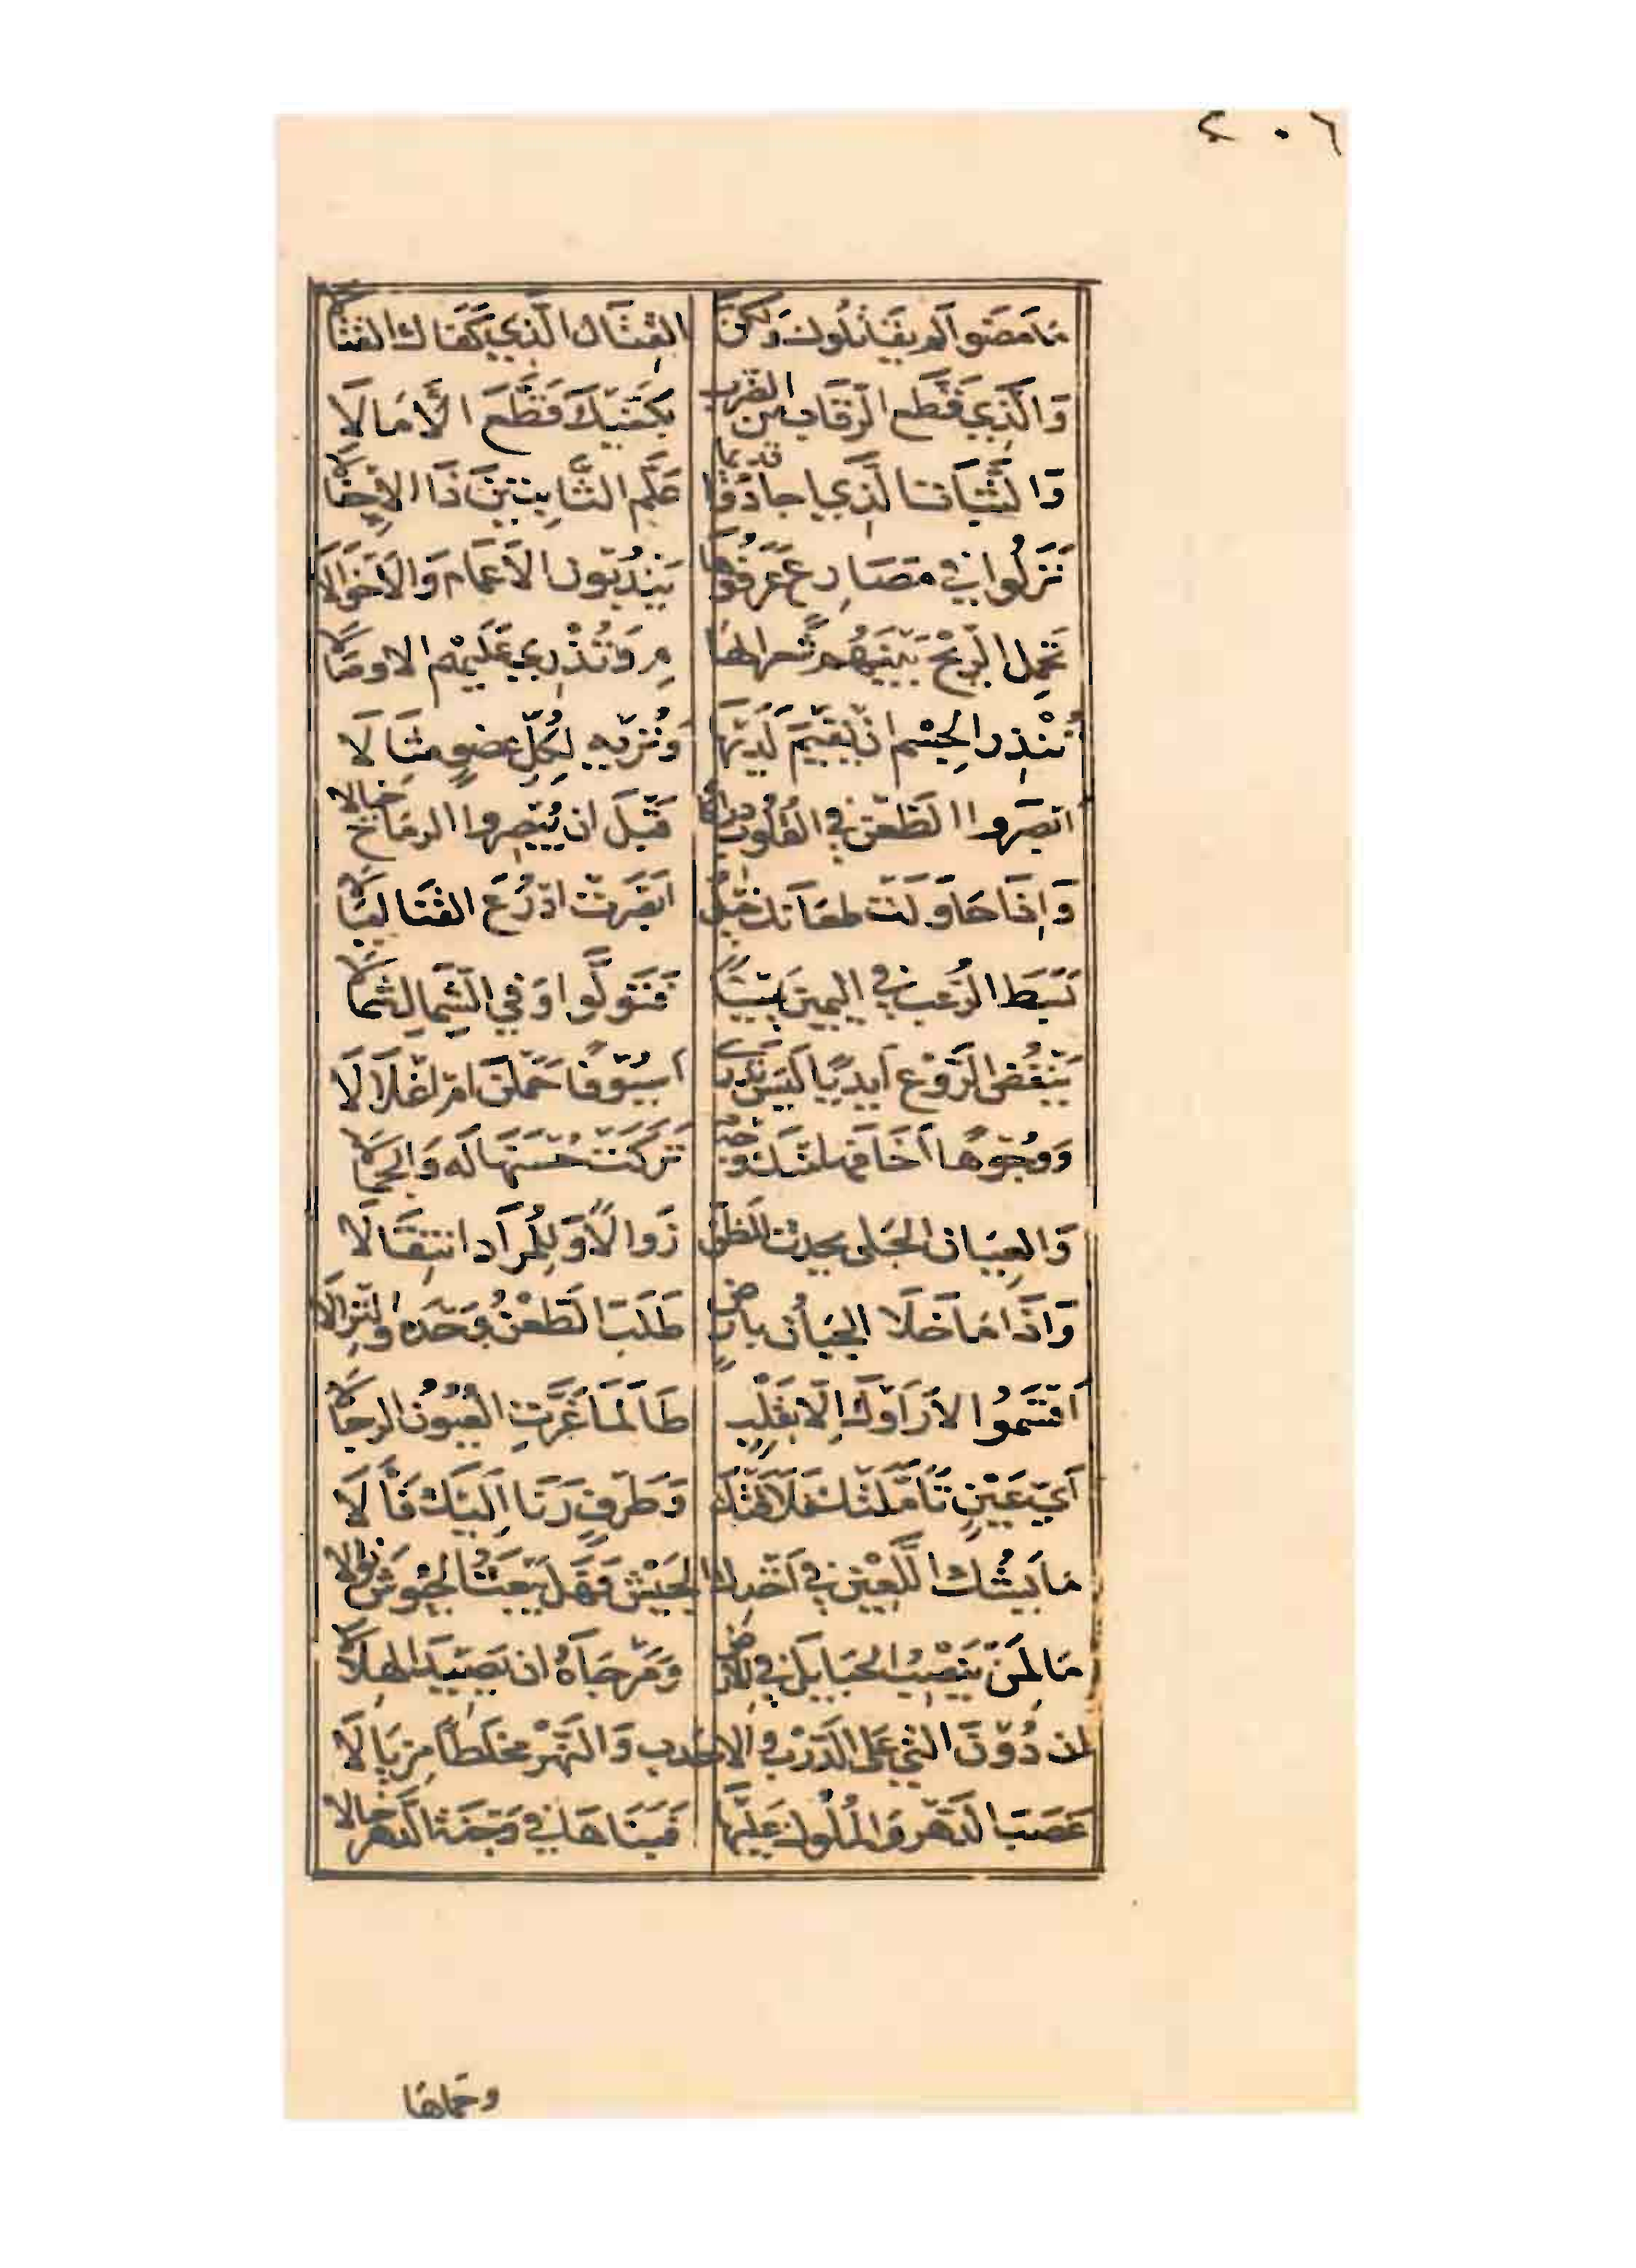 ٢٠٦
مَا مَضَوا لَم يُقَاتِلُوكَ وَلَكِنَّ القِتَالَ الَّذِي كَفَاكَ القِتَالَا
وَالَّذِي قَطَّعَ الرِّقَابَ مِنَ الضَّرْبِ بِكَفَّيْكَ قَطَّعَ الأَمَالَا
وَالثَّبَاتُ الَّذِي اجَادُوْا قَدِيمًا عَلَّمَ الثَّابِتِينَ ذَا الاِجْفَالَا
نَزَلُوا فِي مَصَارِعٍ عَرَفُوْهَا يَنْدُبُونَ الأَعْمَامَ وَالأَخْوَالَا
تَحْمِلُ الرِّيْحُ بَيْنَهُمْ شَعَرَ الهَا مِ وَتُذْرِي عَلَيْهِمُ الاوصَالَا
تُنْذِرُ الجِسْمَ انْ يُقِيمَ لَدَيْهَا وَتُرِيهِ لِكُلِّ عُضوٍ مِثَالَا
ابْصَرُوا الطَّعْنَ فِي القُلُوبِ دِرَاكًا قَبْلَ انْ يُبْصِرُوا الرِمَاحَ خَيَالا
وَاِذَا حَاوَلَتْ طِعَانَكَ خَيْلٌ ابْصَرَتْ اذْرُعَ القَنَا امْيَالَا
بَسَطَ الرُّعْبُ فِي اليَمِينِ يَمِينًا فَتَوَلَّوا وَفِي الشِّمَالِ شِمَالَا
يَنْفُضُ الرَّوْعُ أَيْدِيًا لَيْسَ تَدْرِي أَسُيُوْفًا حَمَلْنَ امْ اغْلَالَا
وَوُجُوْهًا أَخَافَهَا مِنْكَ وَجْهٌ تَرَكَتْ حُسْنَهَا لَهُ وَالجَمَالَا
وَالعِيَانُ الجَلِي يحدث للظن زَوَالًا وَلِلْمُرَادِ انْتِقَالَا
وَاِذَا مَا خَلَا الجَبَانُ بِارْضٍ طَلَبَ الطَّعْنَ وَحْدَهُ وَالنِّزَالَا
أَقْسَمُوا لاَ رَأَوْكَ اِلَّا بِقَلْبٍ طَالَمَا غَرَّتِ العُيُونُ الرِجَالَا
أَيُّ عَيْنٍ تَأَمَّلَتْكَ فَلَاقَتْكَ وَطَرْفٍ رَنَا اِلَيْكَ فَأَلَا
مَا يَشُكُّ اللَّعِيْنُ فِي أَخْذِكَ الجَيْشَ فَهَلْ يَبْعَثُ الجُيُوْشَ نَوَالا
مَا لِمَنْ يَنْصِبُ الحَبَايِلَ فِي الارْضِ وَمَرْجَاهُ انْ يَصِيْدَ الهِلَالَا
ان دُوْنَ التي عَلَى الدَّرْبِ وَالاحْدَبِ وَالنَّهْرِ مِخْلَطًا مِزْيَالَا
غَصَبَ الدَّهْرَ وَالمُلُوكَ عَلَيْهَا فَبَنَاهَا فِي وَجْنَةِ الدَّهْرِ خَالا
وحماها